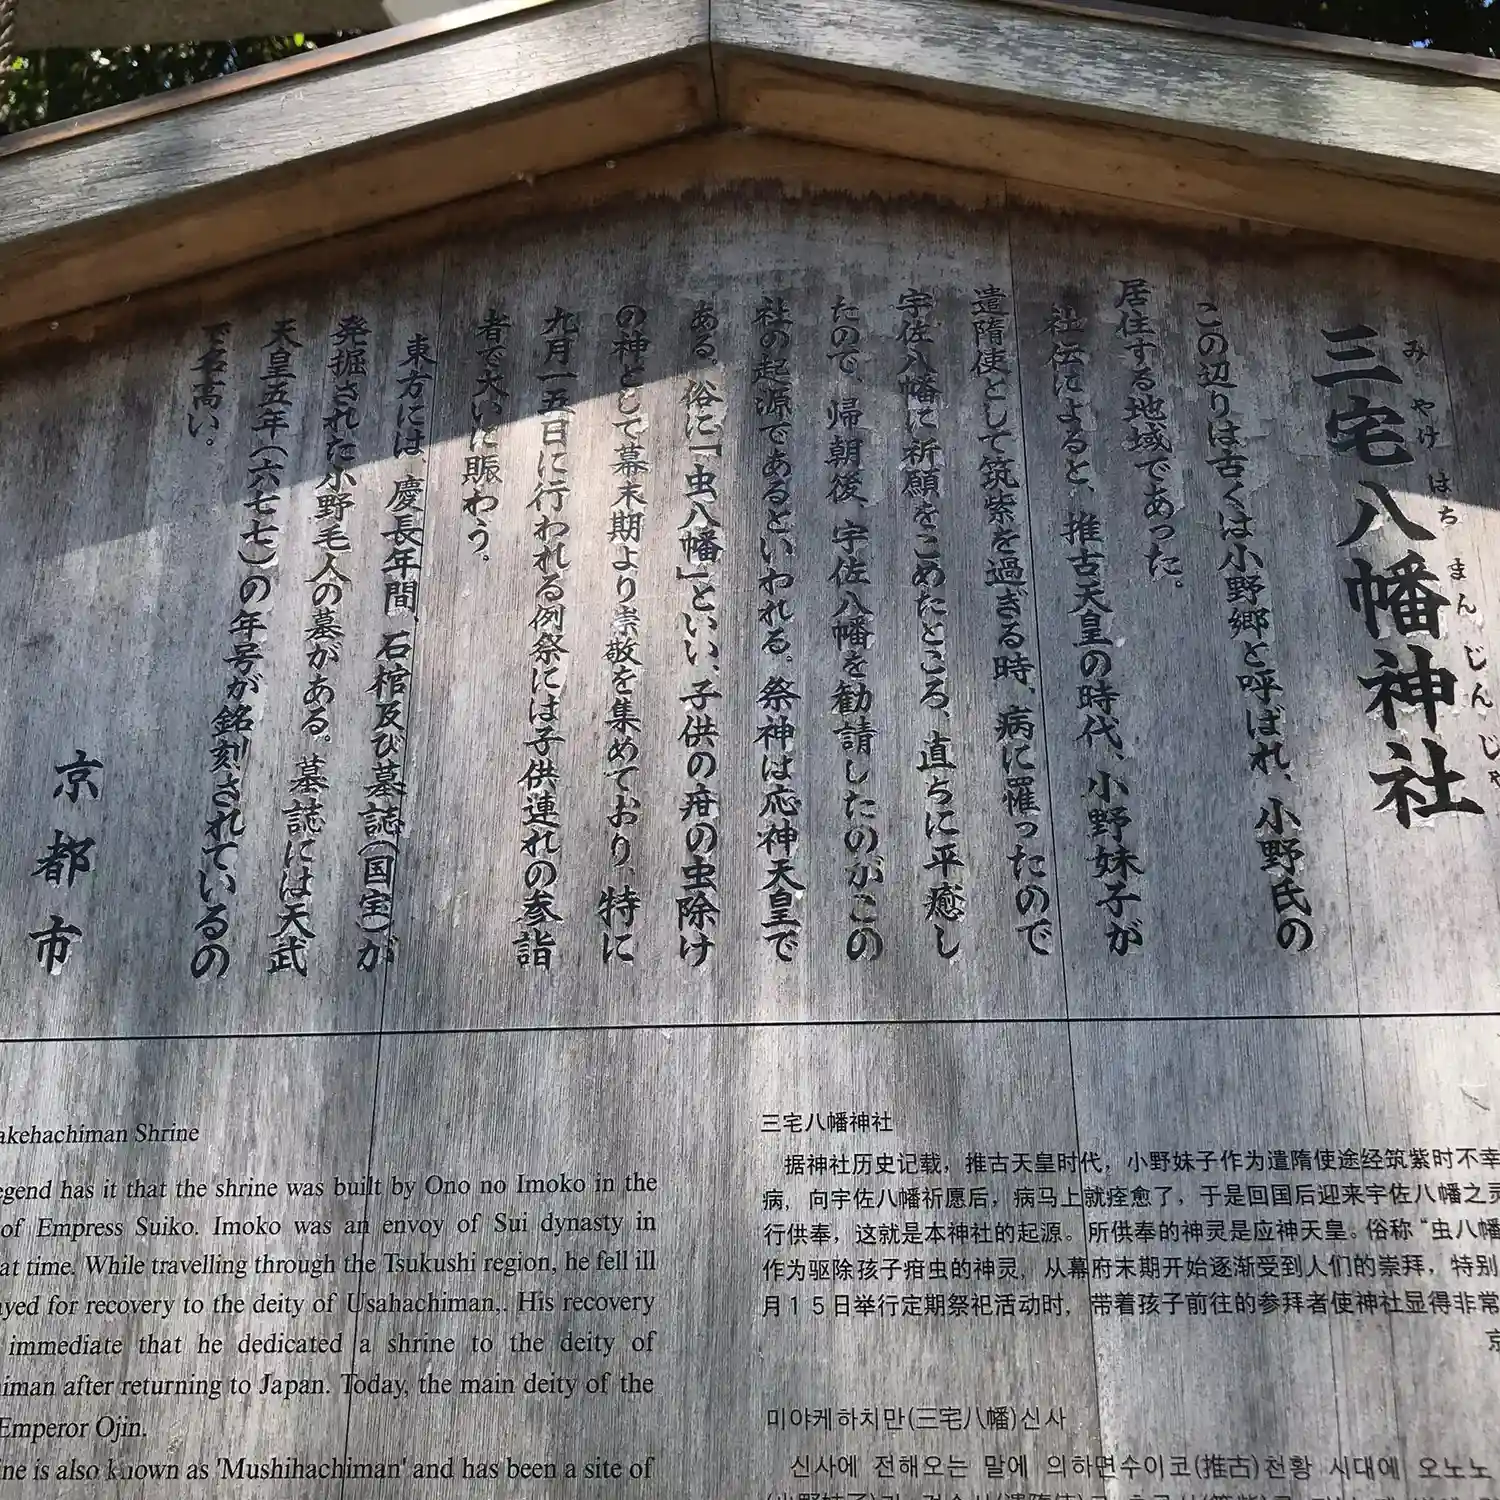 三宅八幡神社
みやけはちまんじんじゃ
この辺りは古くは小野郷と呼ばれ、小野氏の
居住する地域であった。
社伝によると、推古天皇の時代、小野妹子が
遣隋使として筑紫を過ぎる時、病に罹ったので
宇佐八幡に祈願をこめたところ、直ちに平癒し
たので、帰朝後、宇佐八幡を勧請したのがこの
社の起源であるといわれる。祭神は応神天皇で
ある。俗に「虫八幡」といい、子供の疳の虫除け
の神として幕末期より崇敬を集めており、特に
九月一五日に行われる例祭には子供連れの参詣
者で大いに賑わう。
東方には、慶長年間、石棺及び墓誌（国宝）が
発掘された小野毛人の墓がある。墓誌には天武
天皇五年（六七七）の年号が銘刻されているの
で名高い。
京都市
akehachiman Shrine
egend has it that the shrine was built by Ono no Imoko in the
of Empress Suiko. Imoko was an envoy of Sui dynasty in
at time. While travelling through the Tsukushi region, he fell ill
ayed for recovery to the deity of Usahachiman,. His recovery
immediate that he dedicated a shrine to the deity of
iman after returning to Japan. Today, the main deity of the
Emperor Ojin.
ine is also known as 'Mushihachiman' and has been a site of
三宅八幡神社
据神社历史记载，推古天皇时代，小野妹子作为遣隋使途经筑紫时不幸
病，向宇佐八幡祈愿后，病马上就痊愈了，于是回国后迎来宇佐八幡之灵
行供奉，这就是本神社的起源。所供奉的神灵是应神天皇。俗称“虫八幡
作为驱除孩子疳虫的神灵，从幕府末期开始逐渐受到人们的崇拜，特别
月１５日举行定期祭祀活动时，带着孩子前往的参拜者使神社显得非常
京
미야케하치만(三宅八幡)신사
신사에 전해오는 말에 의하면수이코(推古)천황 시대에 오노노